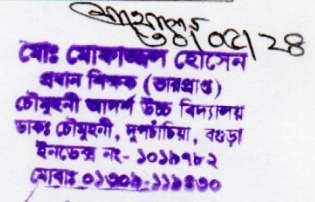 ০৫/২৪
মোঃ মোফাজ্জল হোসেন
প্রধান শিক্ষক (ভারপ্রাপ্ত)
চৌমুহনী আদর্শ উচ্চ বিদ্যালয়
ডাকঃ চৌমুহনী, দুপচাঁচিয়া, বগুড়া
ইনডেক্স নং- ১০১৯৭৮২
মোবাঃ ০১৩০৯-১১৯৪৩০